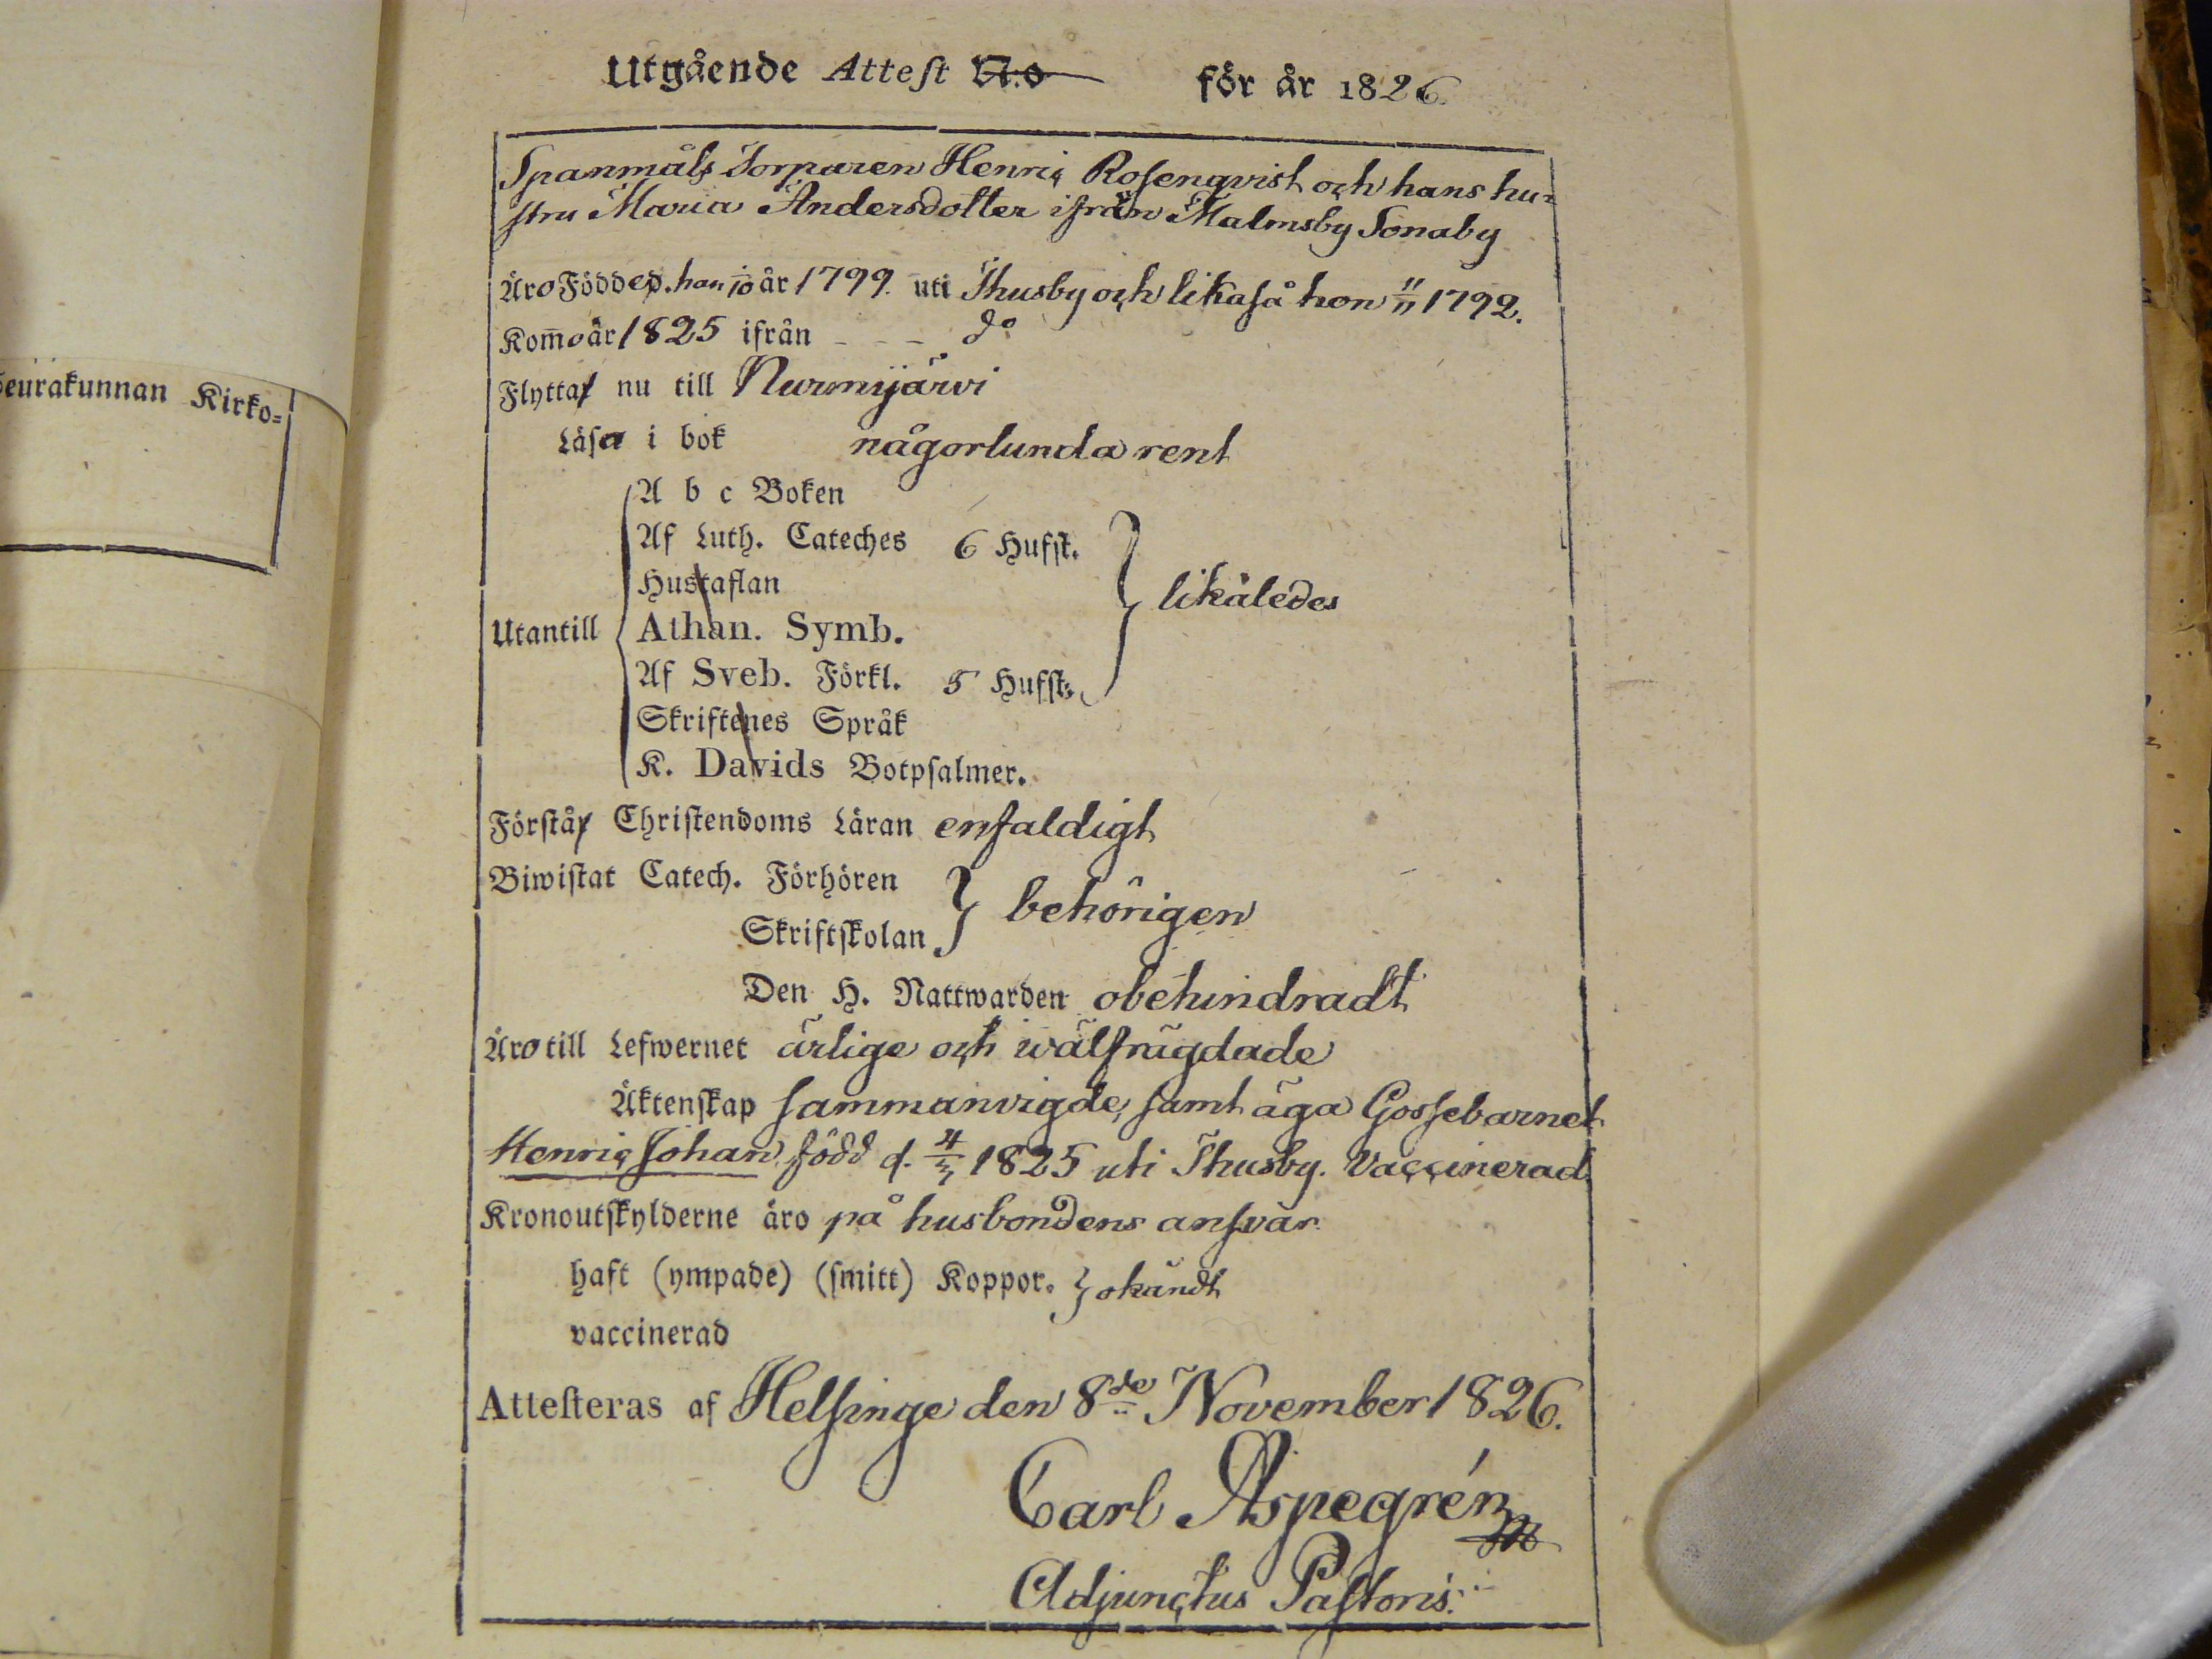 Utgående Attest N:o för år 1826.
Spanmåls Torparen Henric Rosenqvist och hans hu-
stru Maria Andersdotter ifrån Malmsby Sonaby
Äro Födde d. han 1/10 år 1799. uti Thusby och likaså hon 11/11 1792.
Kom̅o år 1825 ifrån - - - do
Flytta nu till Nurmijärvi
Läsa i bok någorlunda rent
A b c Boken
Af Luth. Cateches 6 Hufst.
Hustaflan
likaledes
Utantill Athan. Symb.
Af Sveb. Förkl. 5 Hufst.
Skriftenes Språk
K. Davids Botpsalmer.
Förstå Christendoms Läran enfaldigt
Biwistat Catech. Förhören
behörigen
Skriftskolan
Den H. Nattwarden obehindradt
Äro till Lefwernet ärlige och wälfrägdade
Äktenskap sammanvigde, samt äga Gossebarnet
Henric Johan, född d. 4/3 1825 uti Thusby. Vaccinerad.
Kronoutskylderne äro på husbondens ansvar.
haft (ympade) (smitt) Koppor. } okändt
vaccinerad
Attesteras af Helsinge den 8de November 1826.
Carl Aspegrén
Adjunctus Pastoris.
Seurakunnan Kirko=